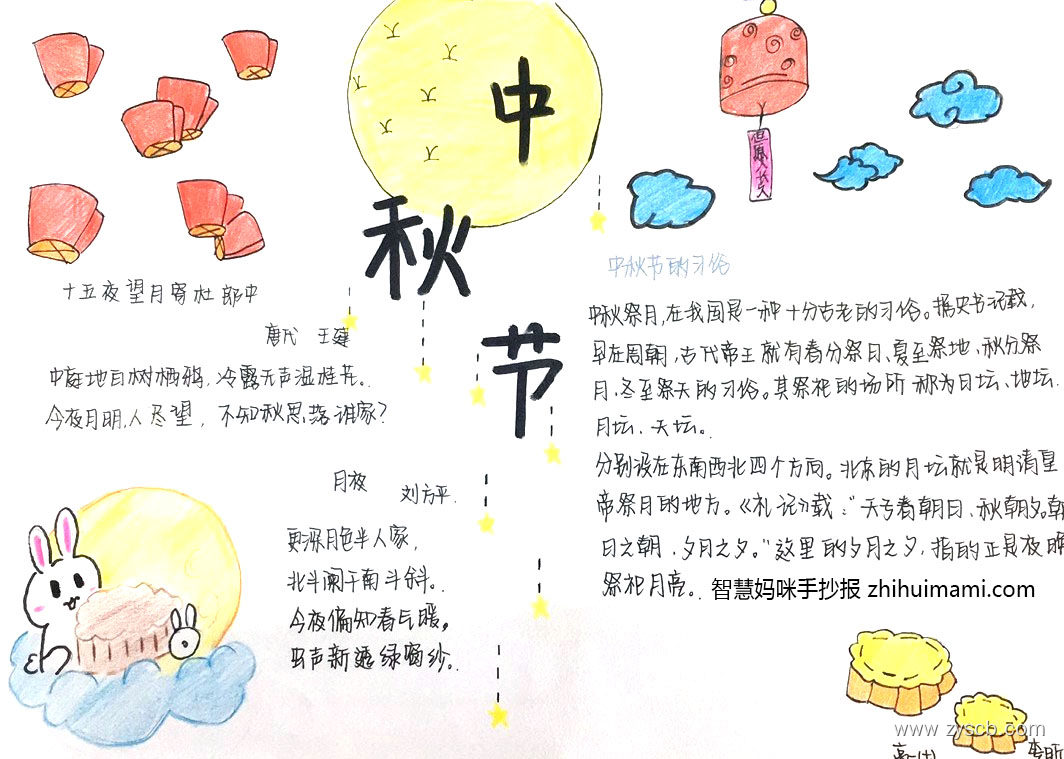 中
秋
节
十五夜望月寄杜郎中
唐代 王建
中庭地白树栖鸦,冷露无声湿桂花。
今夜月明人尽望,不知秋思落谁家?
月夜
刘方平.
更深月色半人家,
北斗阑干南斗斜。
今夜偏知春气暖,
虫声新透绿窗纱.
但愿人长久
中秋节的习俗
中秋祭月,在我国是一种十分古老的习俗。据史书记载,
早在周朝,古代帝王就有春分祭日、夏至祭地、秋分祭
月、冬至祭天的习俗。其祭祀的场所称为日坛、地坛、
月坛、天坛。
分别设在东南西北四个方向。北京的月坛就是明清皇
帝祭月的地方。《礼记》载:"天子春朝日、秋朝夕。朝
日之朝、夕月之夕。"这里的夕月之夕,指的正是夜晚
祭祀月亮。
智慧妈咪手抄报 zhihuimami.com
www.zyscb.com